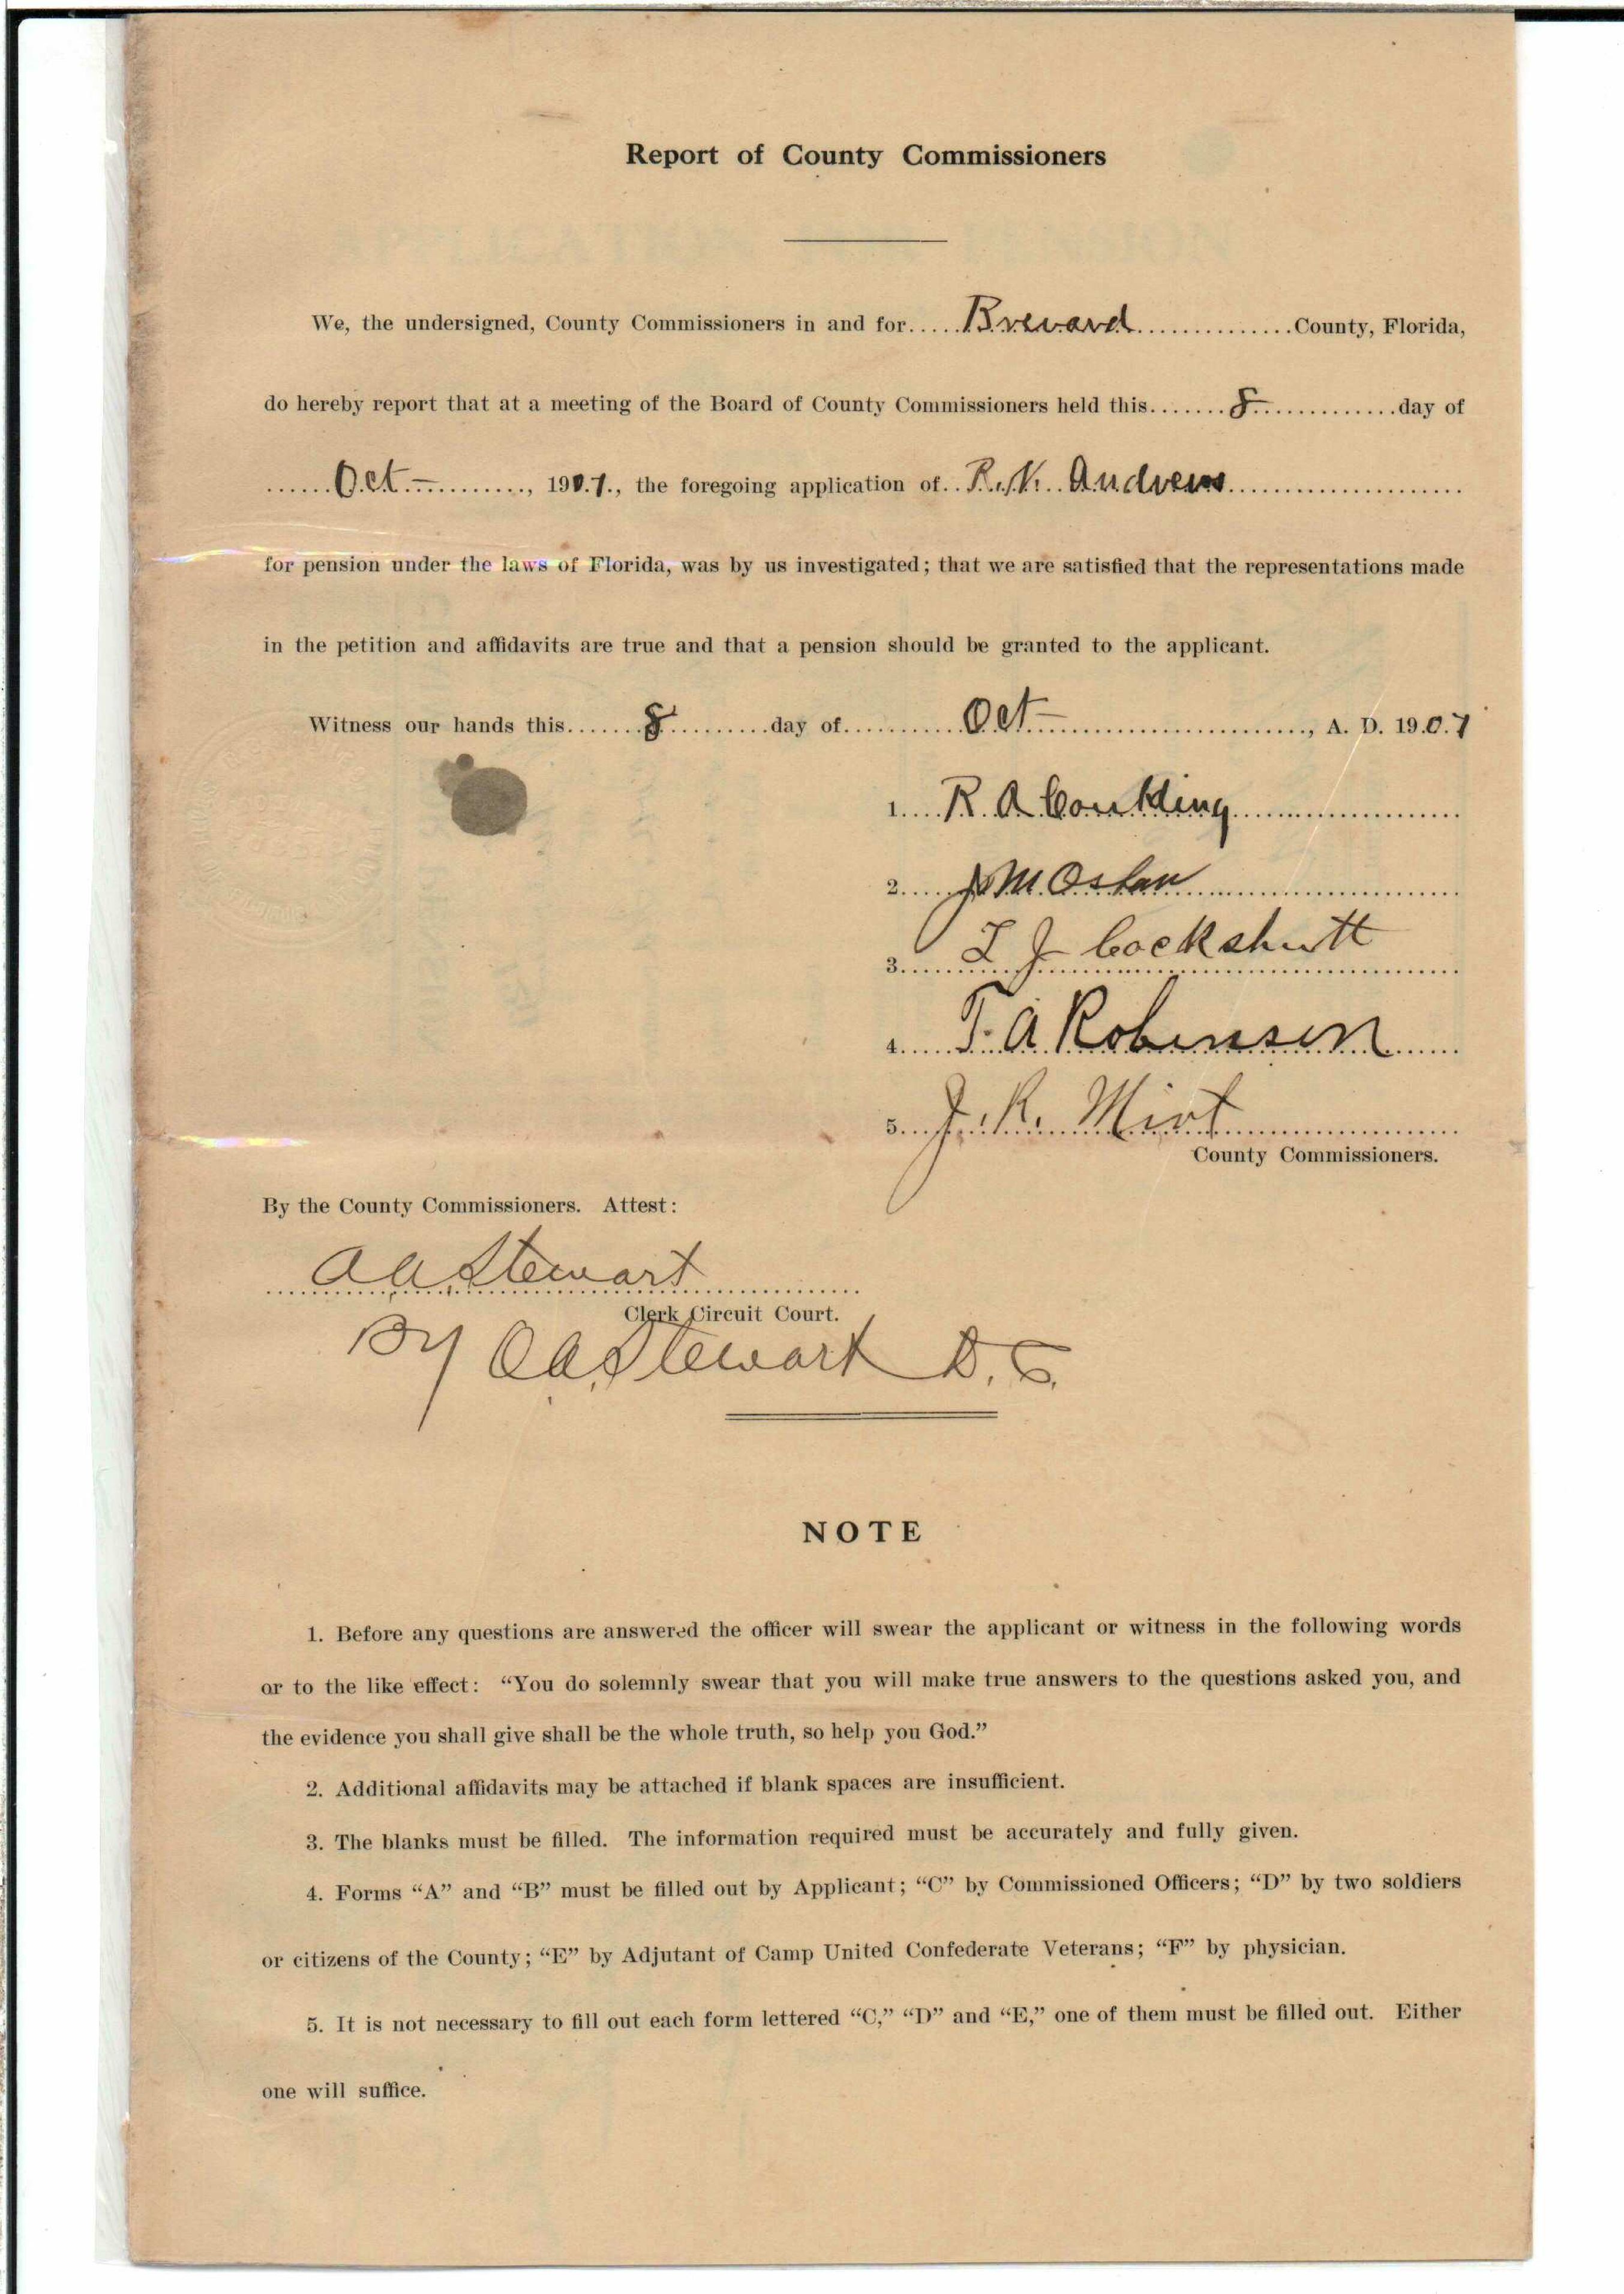 Report of County Commissioners
We, the undersigned, County Commissioners in and for.....Brevard..............County, Florida,
do hereby report that at a meeting of the Board of County Commissioners held this.......8.............day of
......Oct.–........., 1907., the foregoing application of..R. K. Andrews......................
for pension under the laws of Florida, was by us investigated; that we are satisfied that the representations made
in the petition and affidavits are true and that a pension should be granted to the applicant.
Witness our hands this.......8..........day of...........Oct–............................, A. D. 1907
1....R. A. Conkling
2.....J M Osban
3......L J Cockshutt
4.....T. A Robinson
5...J. R. Mirt
County Commissioners.
By the County Commissioners. Attest:
A A Stewart
Clerk Circuit Court.
By O A Stewart D. C.
NOTE
1. Before any questions are answered the officer will swear the applicant or witness in the following words
or to the like effect: “You do solemnly swear that you will make true answers to the questions asked you, and
the evidence you shall give shall be the whole truth, so help you God.”
2. Additional affidavits may be attached if blank spaces are insufficient.
3. The blanks must be filled. The information required must be accurately and fully given.
4. Forms “A” and “B” must be filled out by Applicant; “C” by Commissioned Officers; “D” by two soldiers
or citizens of the County; “E” by Adjutant of Camp United Confederate Veterans; “F” by physician.
5. It is not necessary to fill out each form lettered “C,” “D” and “E,” one of them must be filled out. Either
one will suffice.